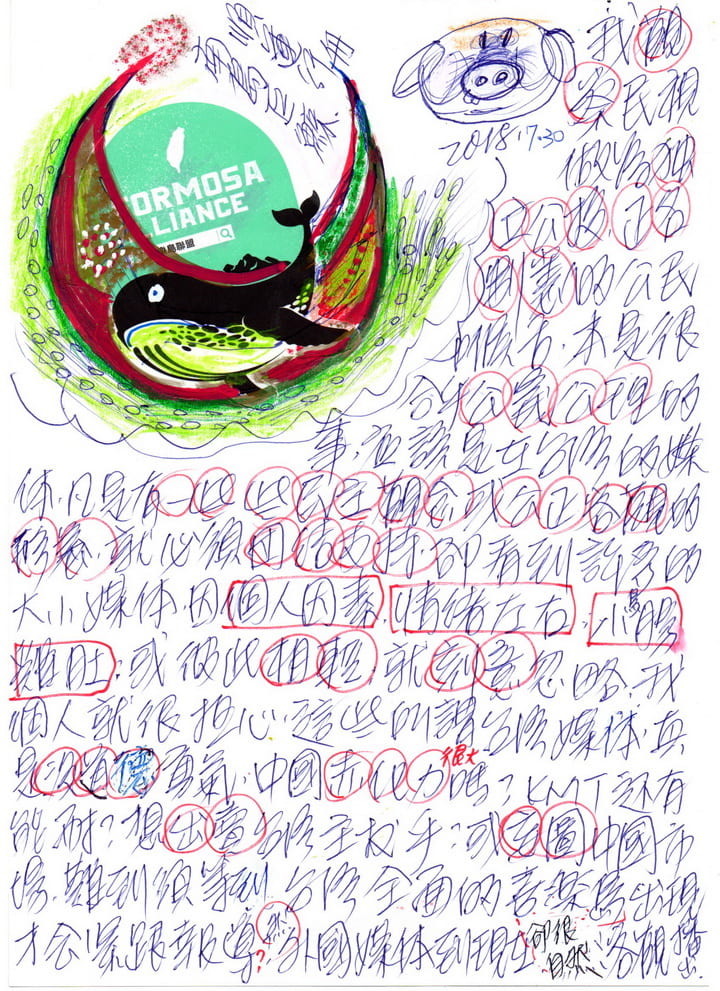 FORMOSA
ALLIANCE
島聯盟
2018.7.30
我觀
察民視
做為獨
立公投,正名
制憲的公民
本是很
合乎公義公理的
事,應該是在台灣的媒
体,凡是有一些些民主觀念或公正客觀的
修養,就必須團結支持,卻看到許多的
大小媒体,因個人因素,情緒左右,小鳥腸
雞肚,或彼此相輕,就刻意忽略,我
個人就很担心,這些所謂台灣媒体,真
是沒道德勇氣,中國赤化力很大嗎?KMT還有
能耐?想出賣台灣主权乎?或貪圖中國市
場,難到須等到台灣全面的喜樂島出現
才会緊跟報導?然外國媒体到現在卻很自然客觀播出.